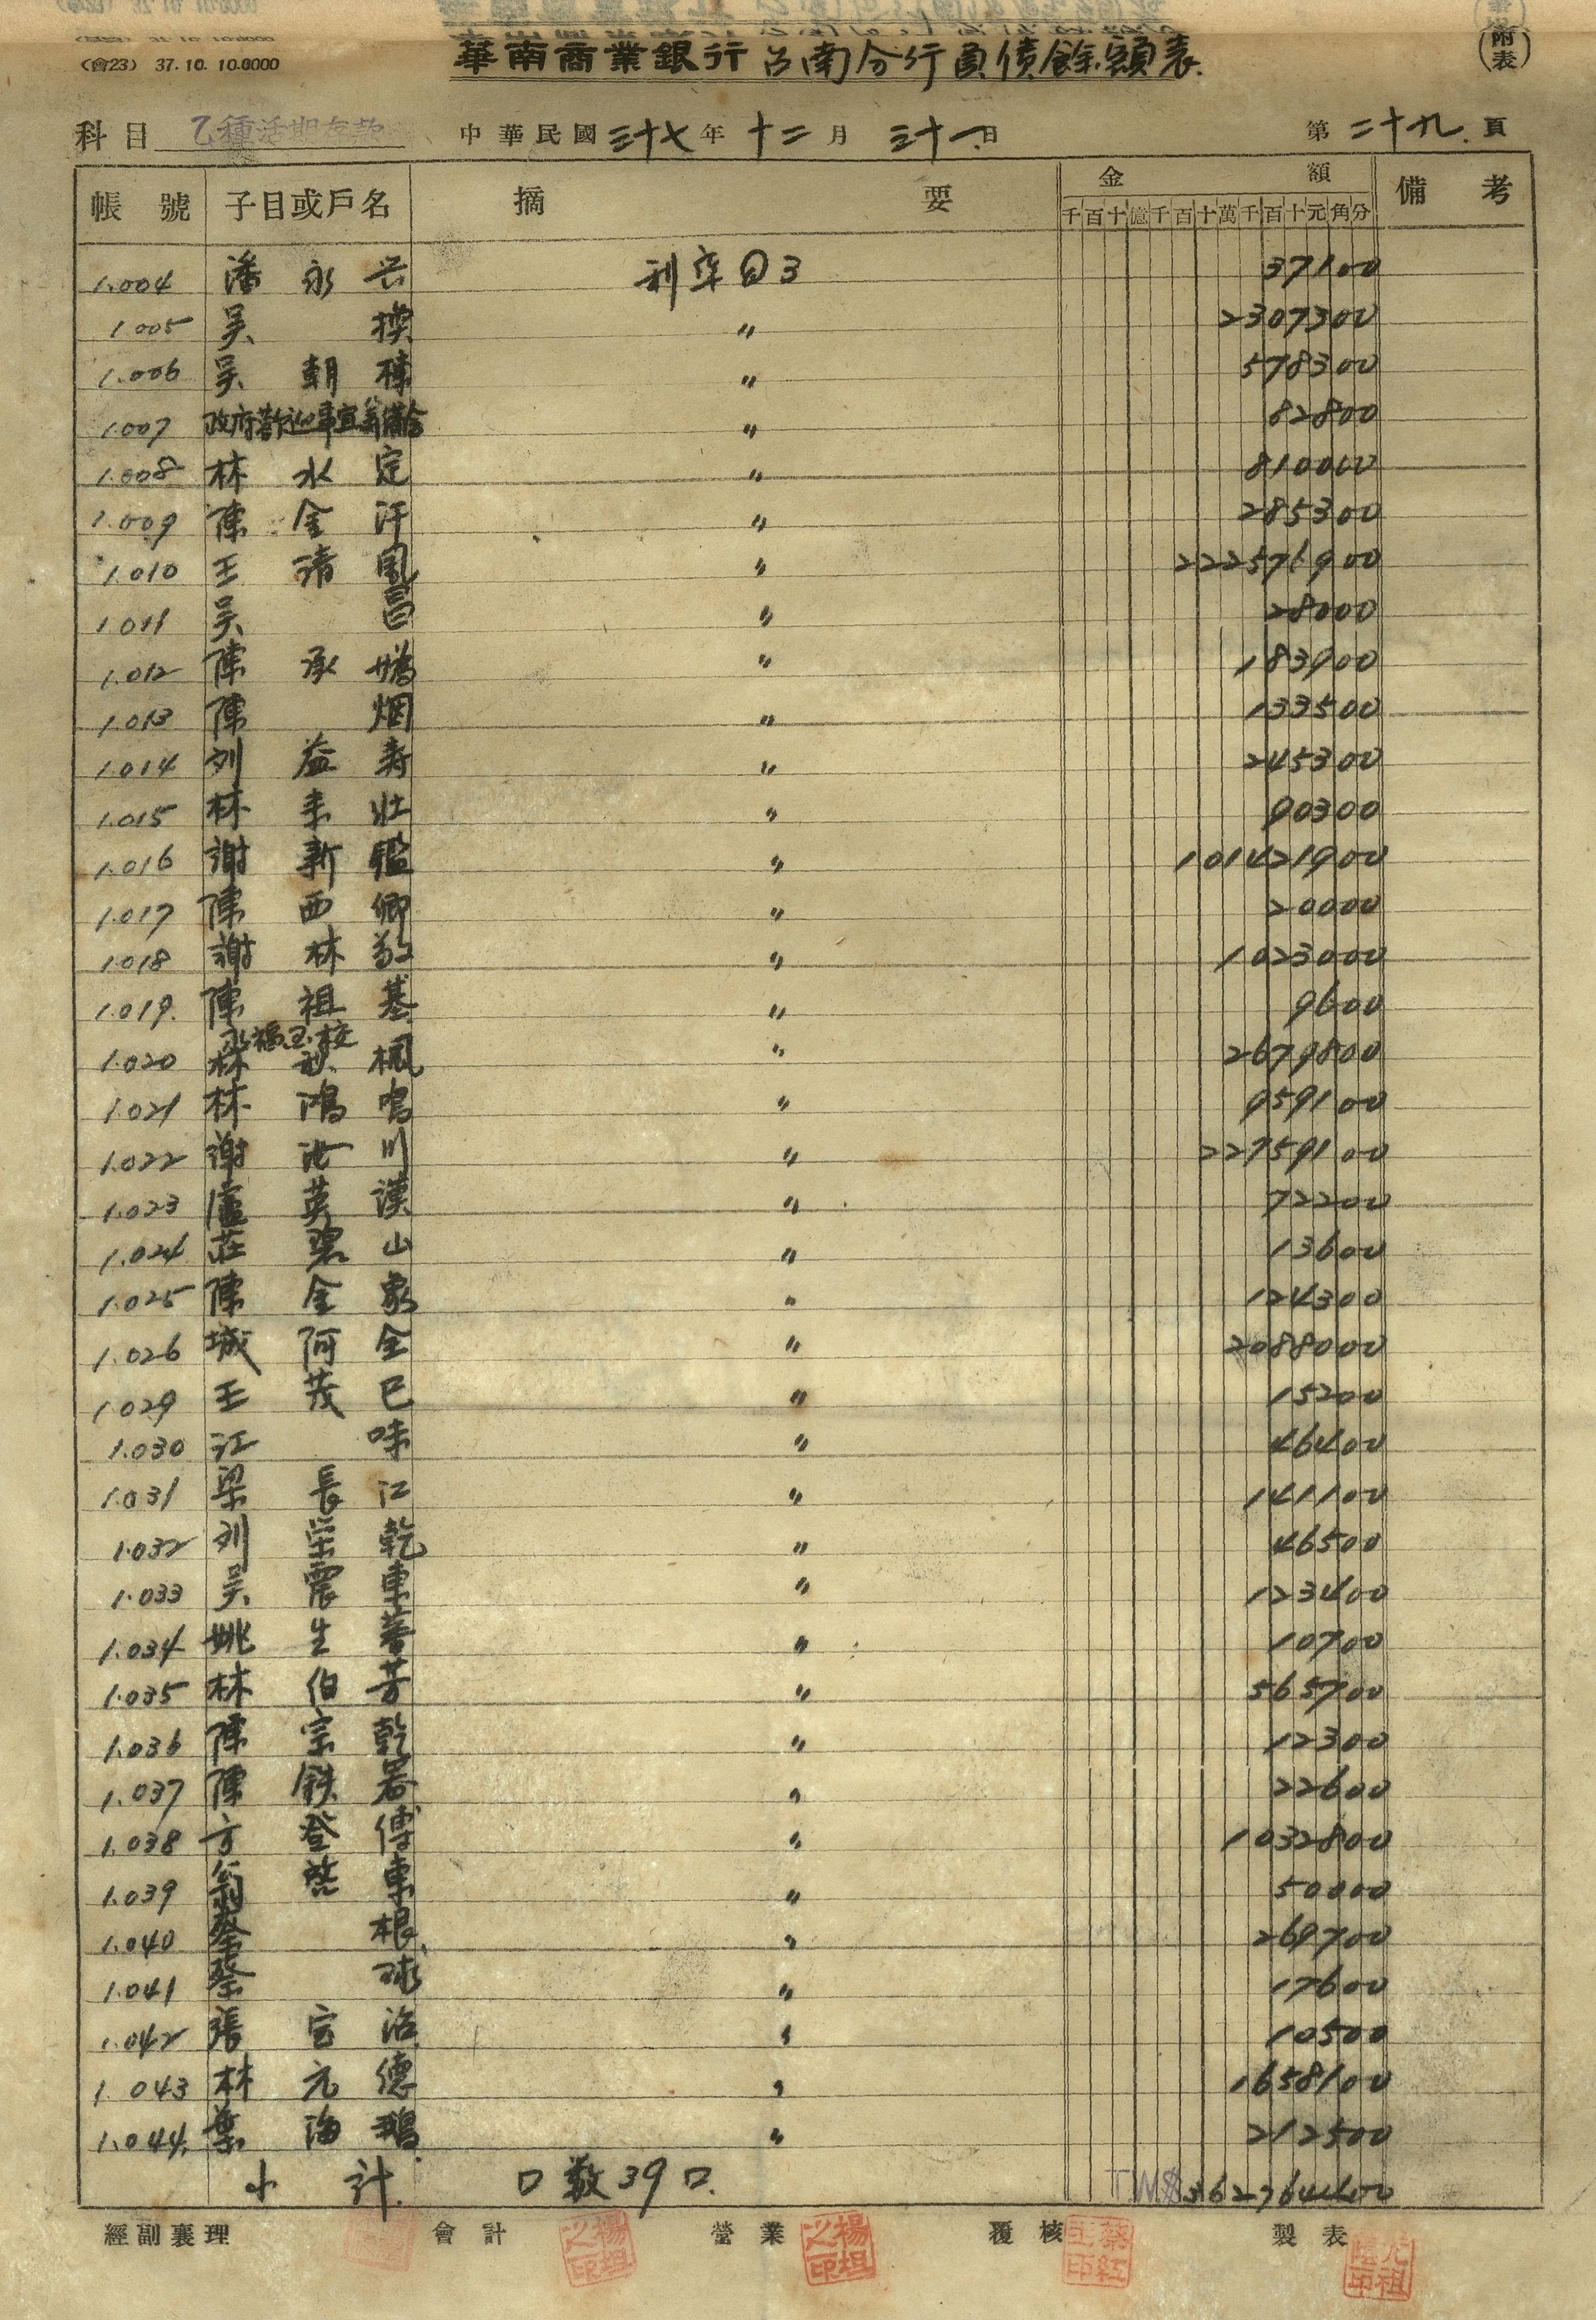 (會23) 37.10. 10.0000
華南商業銀行台南分行負債餘額表
(附表)
科目 乙種活期存款 中華民國三十七年十二月三十一日 第二十九頁
帳號 子目或戶名 摘要 金額 備考
千百十億千百十萬千百十元角分
1.004 潘永兴 利率日3 37100
1.005 吳 〃 2307300
1.006 吳朝棟 〃 578300
1.007 政府歡迎事宜籌備會 〃 82800
1.008 林水定 〃 810000
1.009 陳金汗 〃 285300
1.010 王清風 〃 222576900
1.011 吳昌 〃 28000
1.012 陳承 〃 183900
1.013 陳烟 〃 133500
1.014 刘益寿 〃 245300
1.015 林来壮 〃 90300
1.016 謝新鑑 〃 101421900
1.017 陳西卿 〃 20000
1.018 謝林 〃 1023000
1.019 陳祖基 〃 9600
永福国校
1.020 林秋楓 〃 2679800
1.021 林鴻鳴 〃 959100
1.022 謝汝川 〃 22759100
1.023 盧英漢 〃 72200
1.024 莊碧山 〃 13600
1.025 陳金象 〃 124300
1.026 城阿全 〃 2088000
1.029 王茂巳 〃 15200
1.030 江味 〃 46400
1.031 梁長江 〃 141100
1.032 刘荣乾 〃 46500
1.033 吳震東 〃 123400
1.034 姚生 〃 10700
1.035 林伯芳 〃 565700
1.036 陳宗乾 〃 12300
1.037 陳鉄 〃 22600
1.038 方登傳 〃 1032800
1.039 翁啓東 〃 50000
1.040 蔡根 〃 269700
1.041 蔡球 〃 17600
1.042 張宝治 〃 10500
1.043 林元德 〃 1658100
1.044 葉海鵝 〃 212500
小計 口数39口. TW$362764400
經副襄理 會計 營業 覆核 製表
楊坦之印 楊坦之印